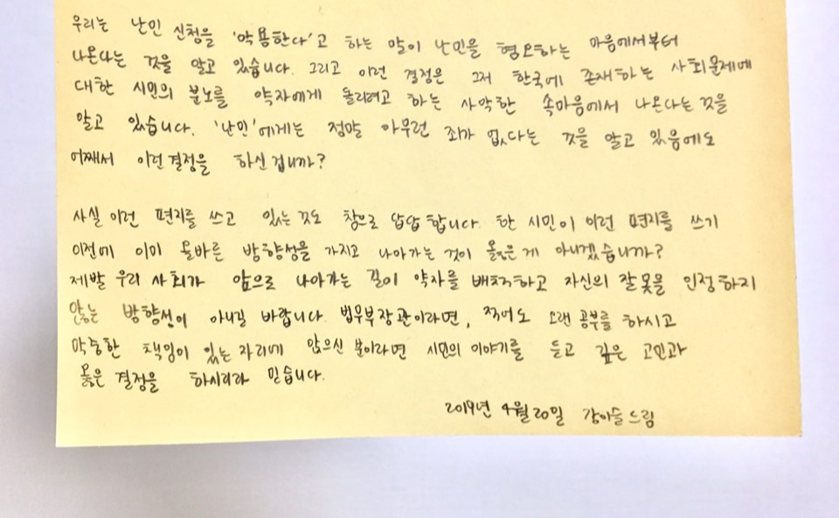 우리는 난민 신청을 '악용한다'고 하는 말이 난민을 혐오하는 마음에서부터
나온다는 것을 알고 있습니다. 그리고 이런 결정은 그저 한국에 존재하는 사회문제에
대한 시민의 분노를 약자에게 돌리려고 하는 사악한 속마음에서 나온다는 것을
알고 있습니다. '난민'에게는 정말 아무런 죄가 없다는 것을 알고 있음에도
어째서 이런 결정을 하신 겁니까?
사실 이런 편지를 쓰고 있는 것도 참으로 답답합니다. 한 시민이 이런 편지를 쓰기
이전에 이미 올바른 방향성을 가지고 나아가는 것이 옳은 게 아니겠습니까?
제발 우리 사회가 앞으로 나아가는 길이 약자를 배척하고 자신의 잘못을 인정하지
않는 방향성이 아니길 바랍니다. 법무부장관이라면, 적어도 오랜 공부를 하시고
막중한 책임이 있는 자리에 앉으신 분이라면 시민의 이야기를 듣고 깊은 고민과
옳은 결정을 하시리라 믿습니다.
2019년 4월 20일 강이슬 드림